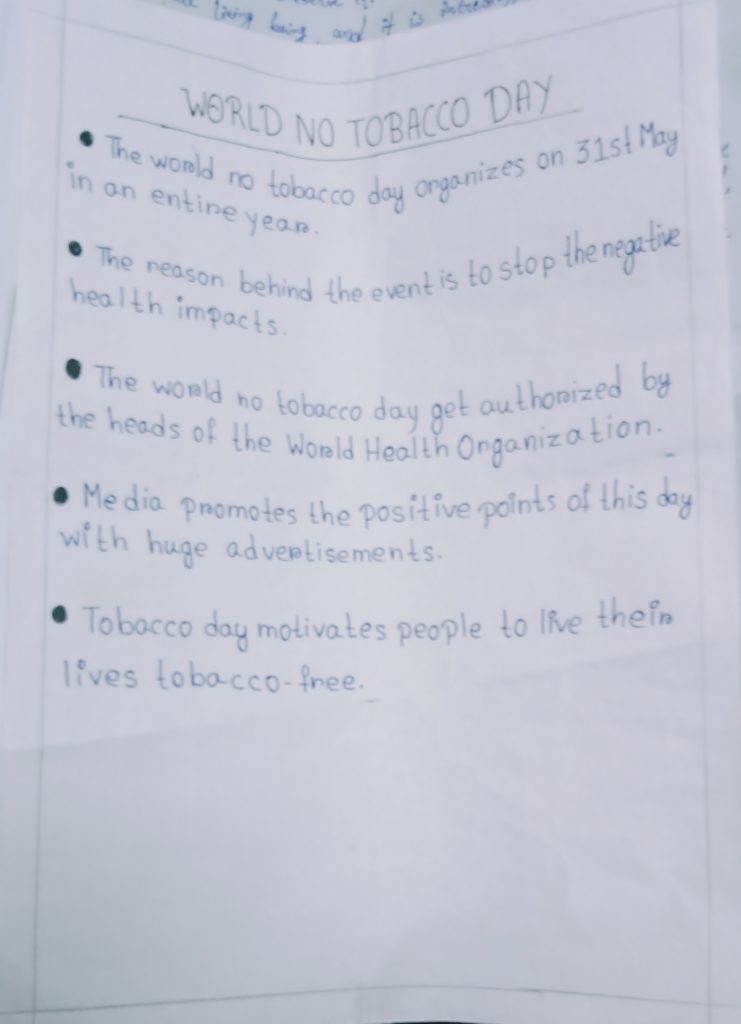 living being, and it is
WORLD NO TOBACCO DAY
• The world no tobacco day organizes on 31st May
in an entire year.
• The reason behind the event is to stop the negative
health impacts.
• The world no tobacco day get authorized by
the heads of the World Health Organization.
• Media promotes the positive points of this day
with huge advertisements.
• Tobacco day motivates people to live their
lives tobacco-free.